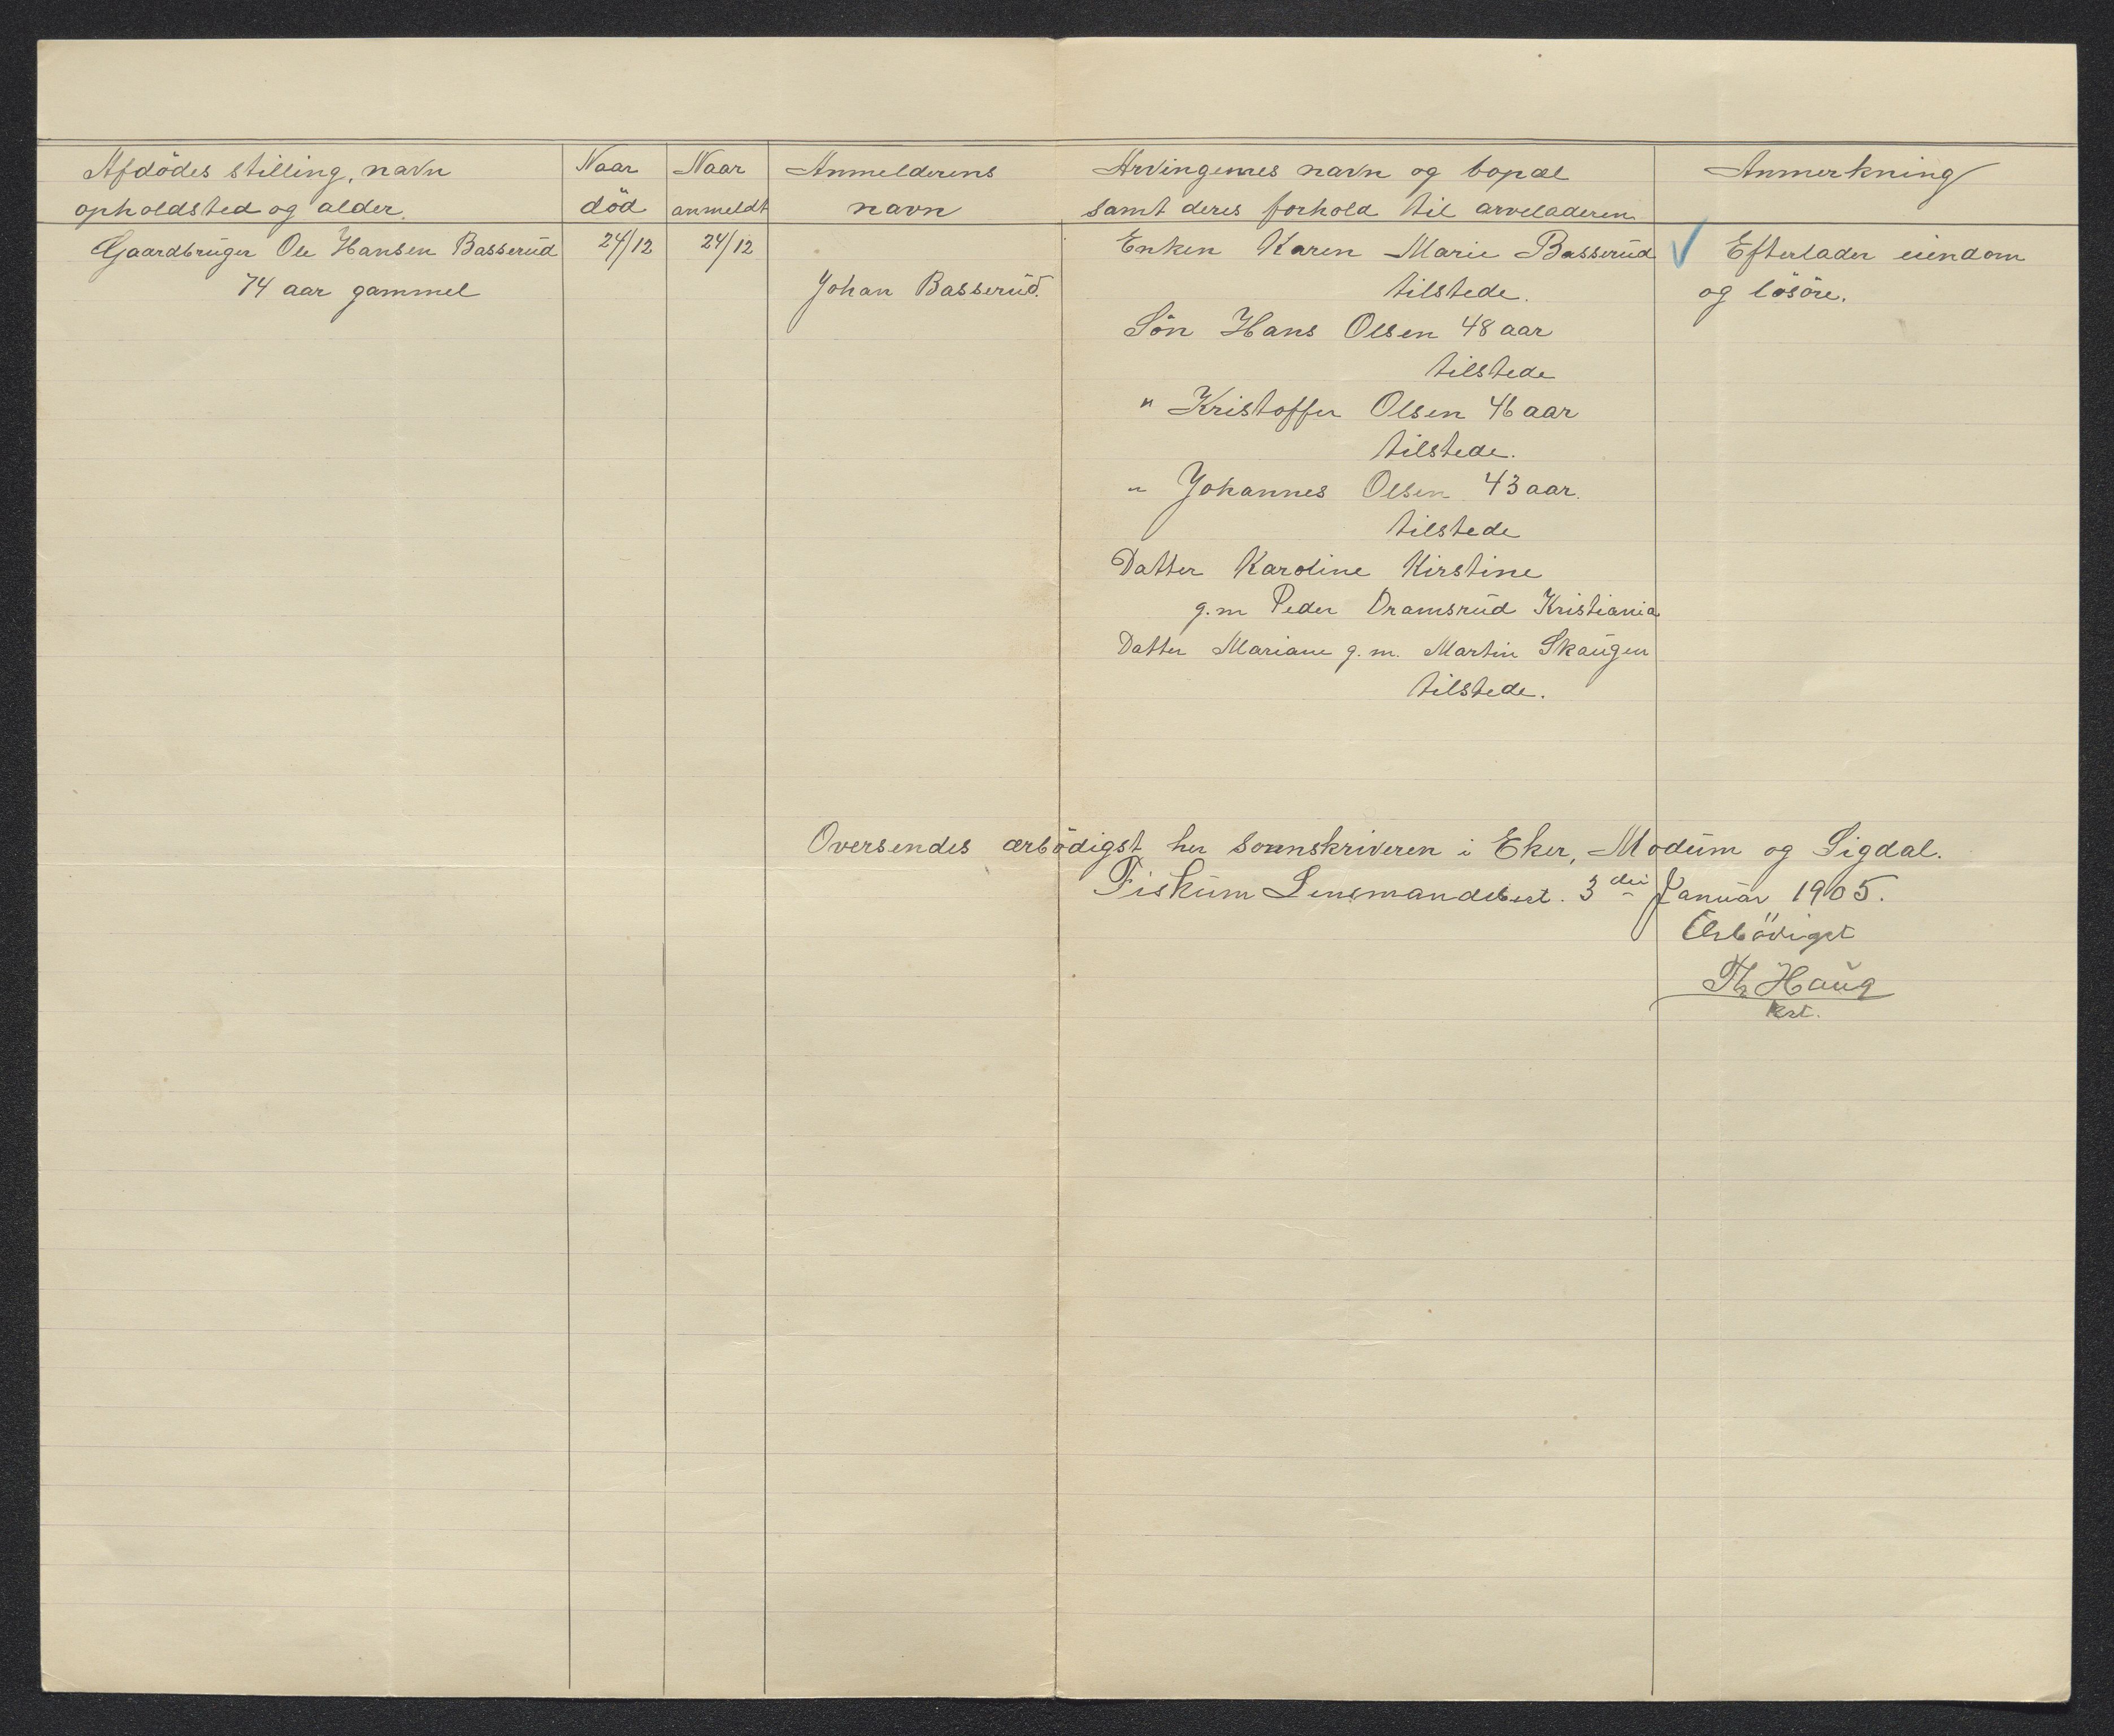 Afdödes stilling, navn
opholdsted og alder.
Naar
död
Naar
anmeldt
Anmelderens
navn
Arvingernes navn og bopæl
samt deres forhold til arveladeren
Anmerkning
Gaardbruger Ole Hansen Basserud
74 aar gammel
24/12
24/12
Johan Basserud.
Enken Karen Marie Basserud
tilstede.
Sön Hans Olsen 48 aar
tilstede
" Kristoffer Olsen 46 aar
tilstede.
" Johannes Olsen 43 aar.
tilstede
Datter Karoline Kirstine
g.m Peder Dramsrud Kristiania
Datter Mariane g.m. Martin Skaugen
tilstede.
√ Efterlader eiendom
og lösöre.
Oversendes ærbödigst hr sorenskriveren i Eker, Modum og Sigdal.
Fiskum Lensmandsbest. 3 die Januar 1905.
Ærbödigst
Th Haug
kst.